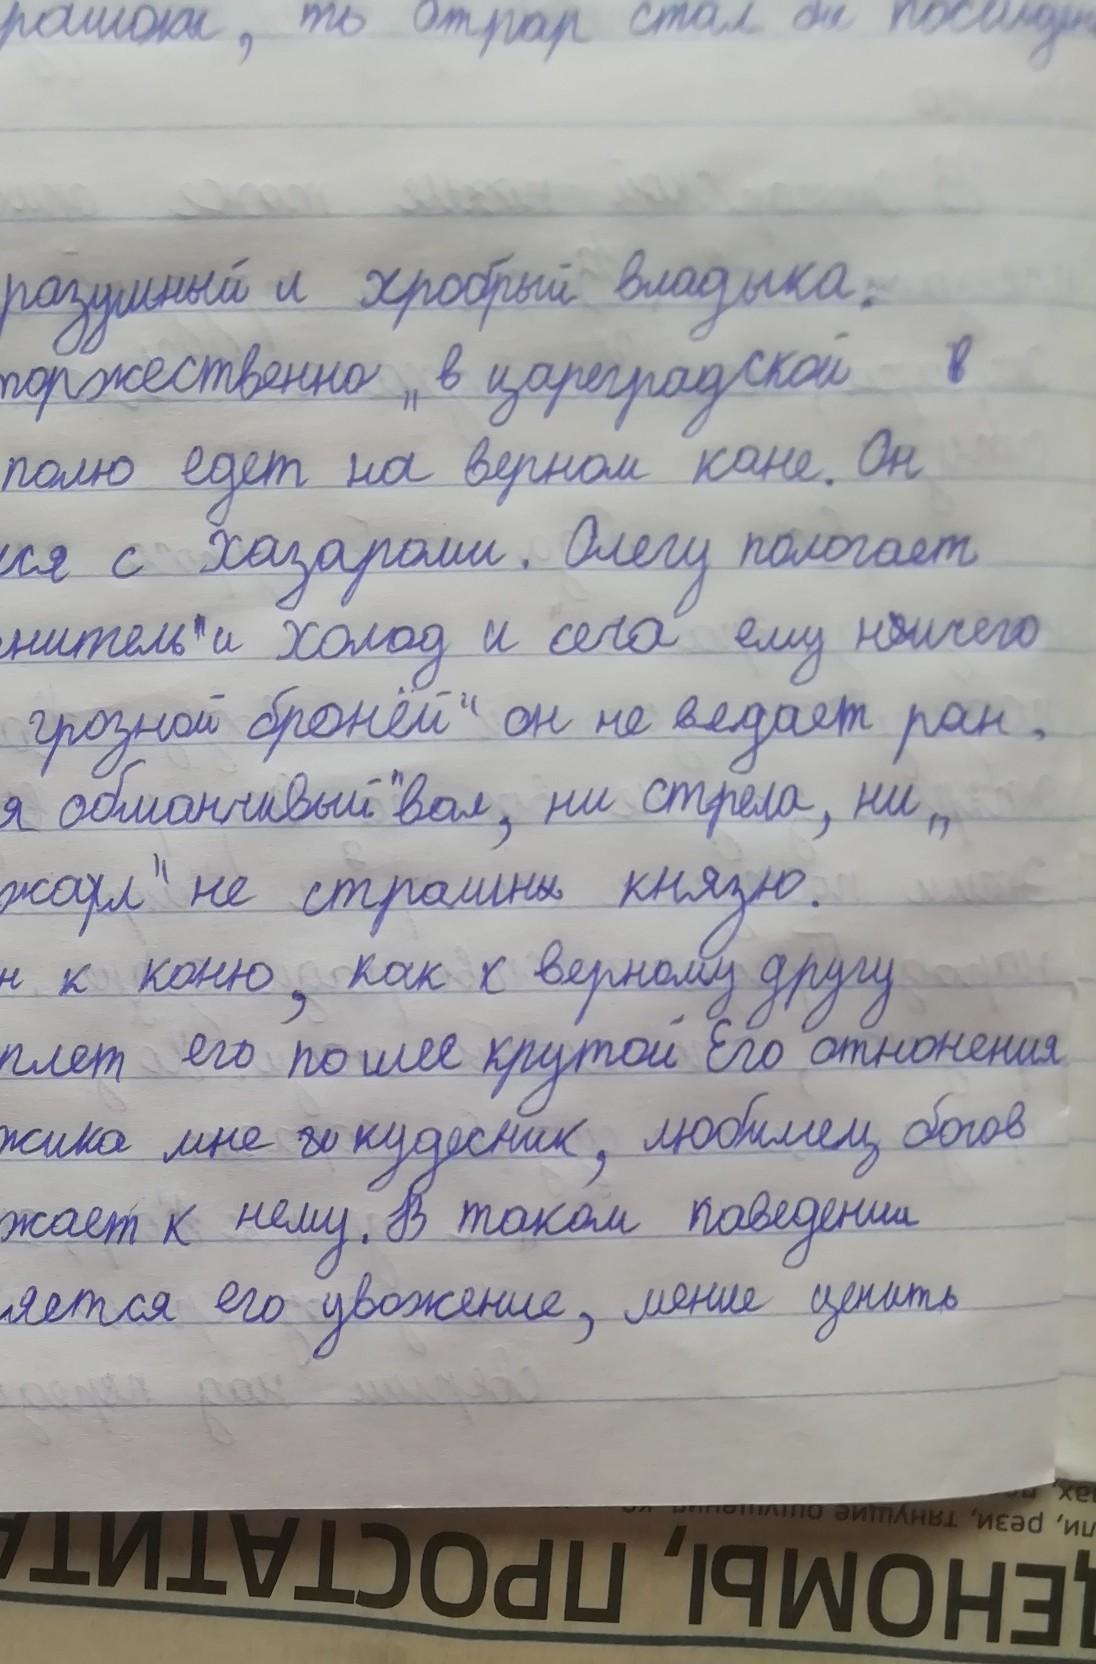 , то отрар стал бы
разумный и хробрый владыка.
торжественно „в цареградской в
полю едет на верном коне. Он
ися с Хазарами. Олегу пологает
нитель" и холод и сеча ему ничего
грозной бронёй" он не ведает ран.
я обманчивый" вал, ни стрела, ни „
жал" не страшны князю.
н к коню, как к верному другу
плет его по шее крутой Его отнонения
жика мне кудесник, любимец богов
жает к нему. В таком поведении
ляется его увожение, мение ценить
ли, рези, тянущие ощущения
ДЕНОМЫ, ПРОСТАТИТА